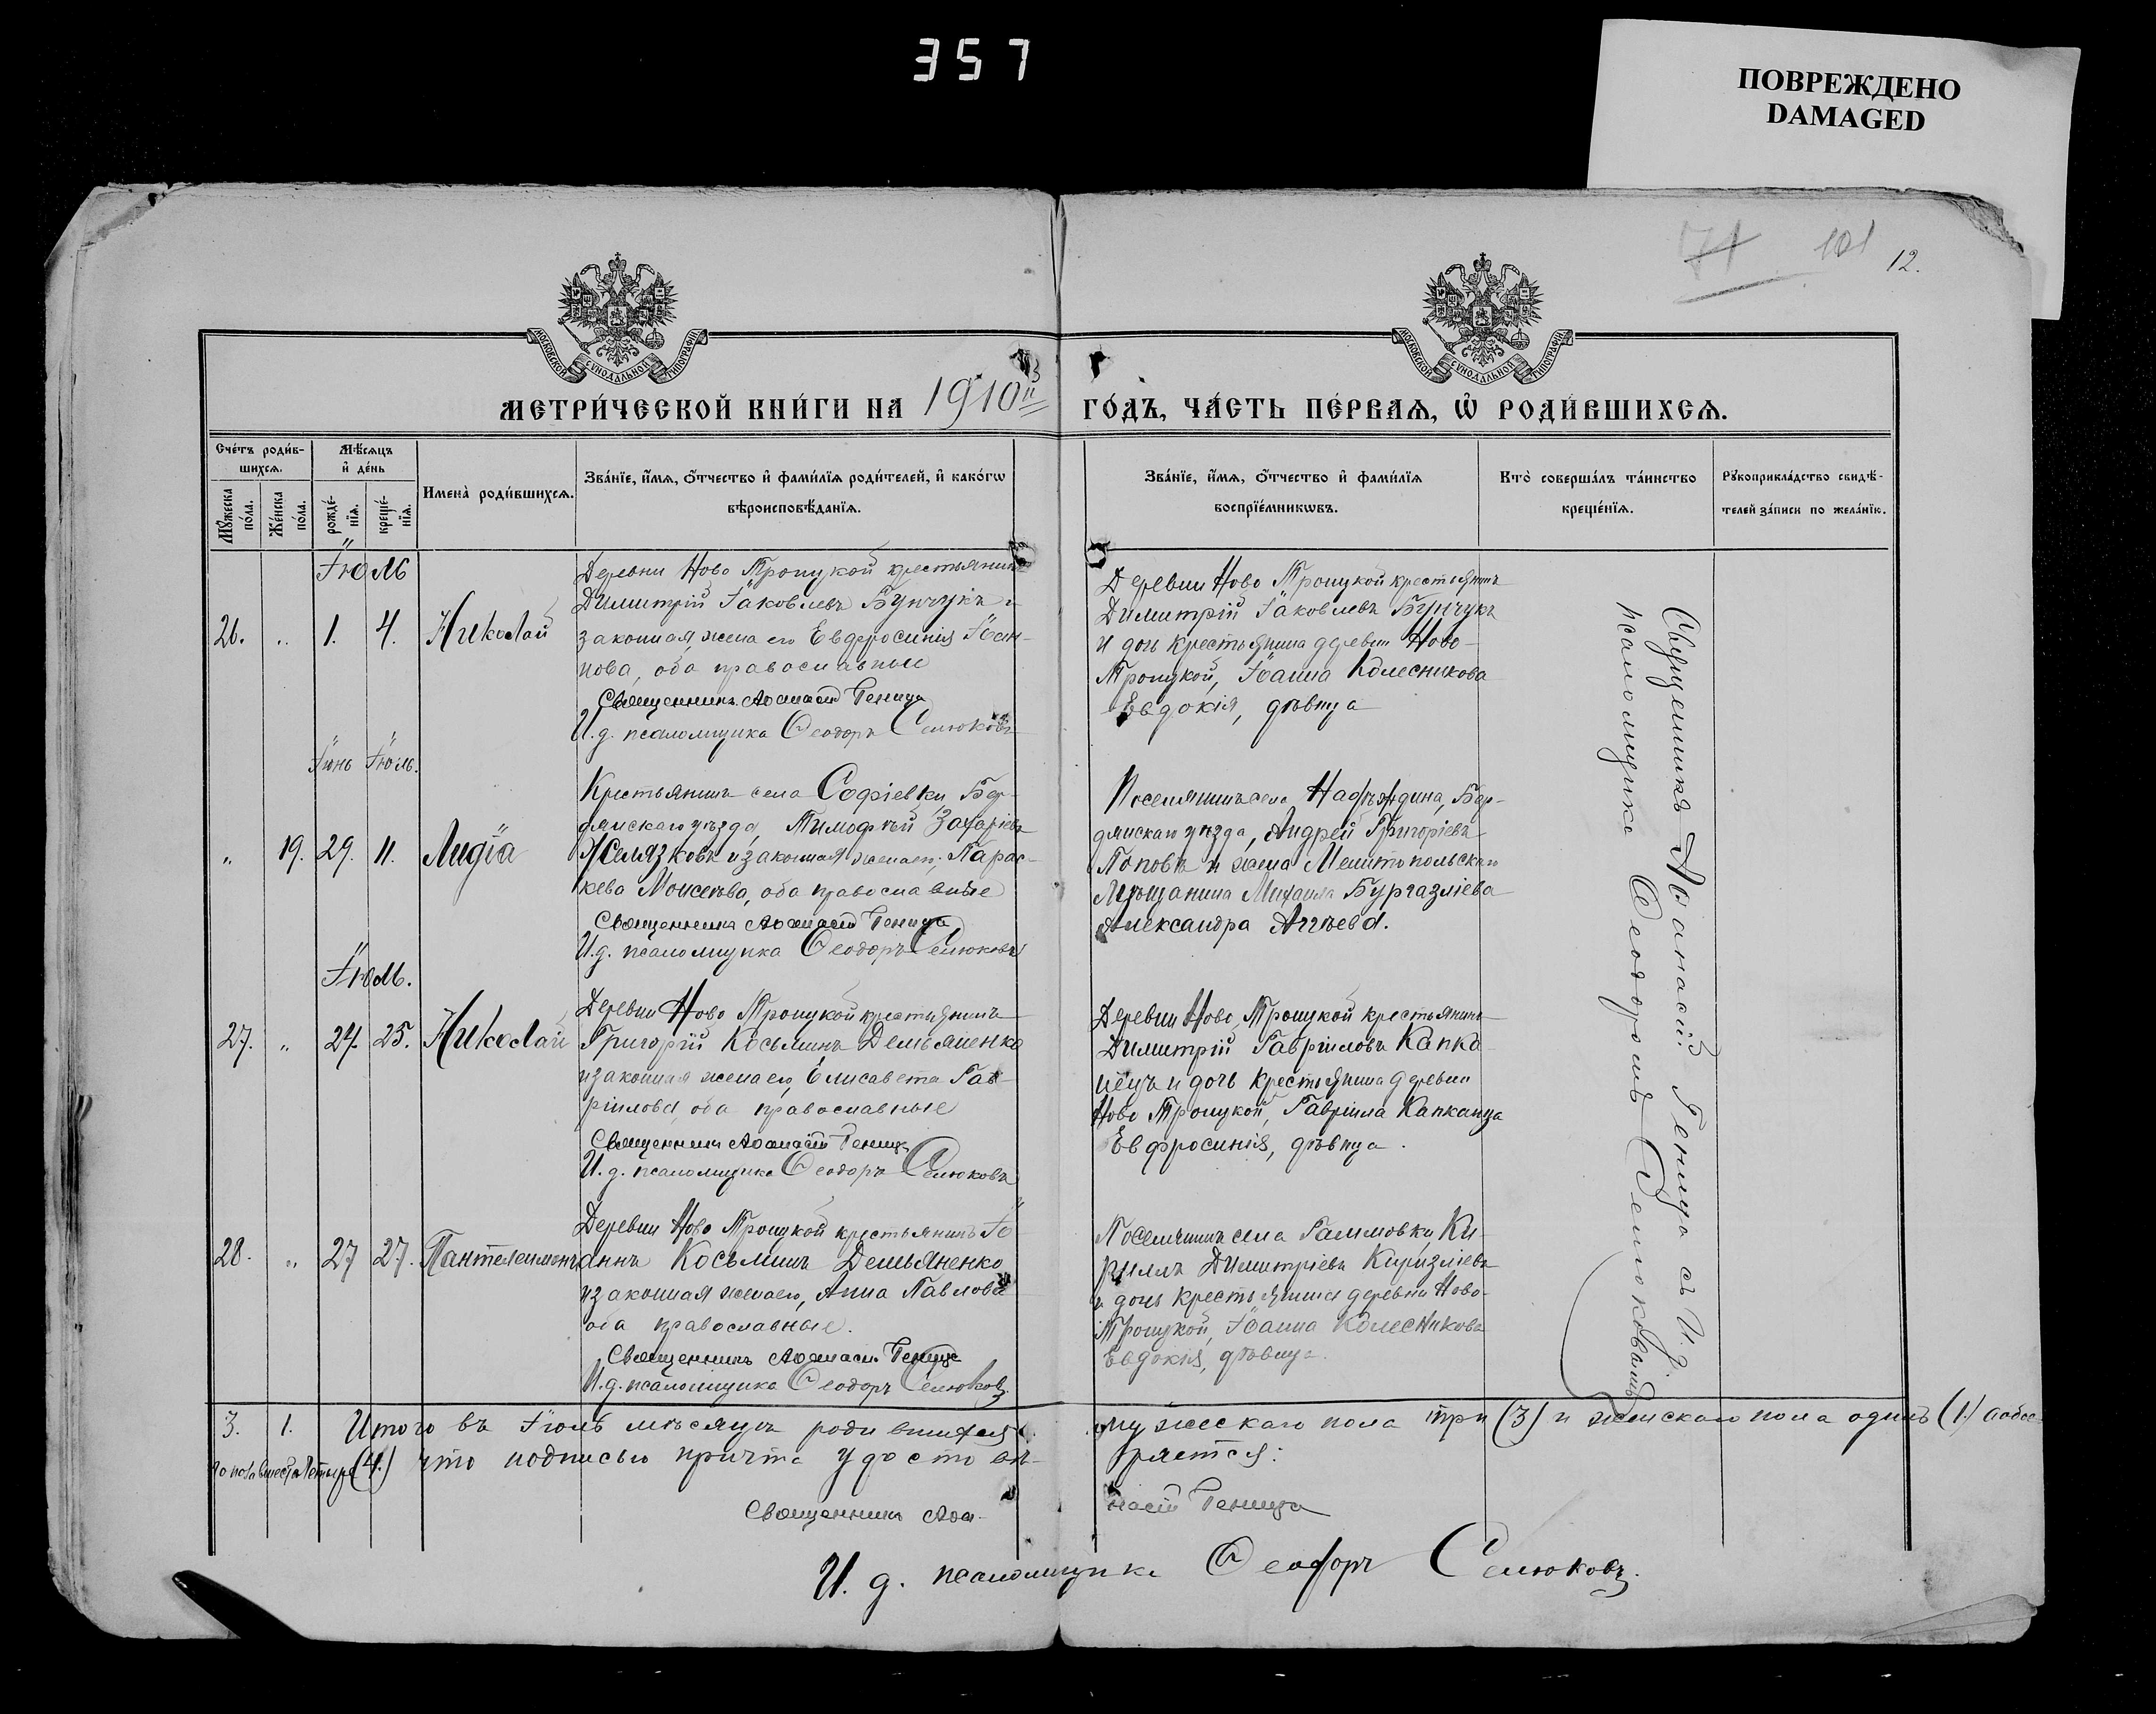 357
ПОВРЕЖДЕНО
DAMAGED
71 101 12.
МОСКОВСКОЙ СѴНОДАЛЬНОЙ ТИПОГРАФІИ
МОСКОВСКОЙ СѴНОДАЛЬНОЙ ТИПОГРАФІИ
МЕТРИ́ЧЕСКОЙ КНИ́ГИ НА 1910й ГО́ДЪ, ЧА́СТЬ ПЕ́РВАѦ, Ѡ РОДИ́ВШИХСѦ.
Сче́тъ роди́в-
шихсѧ.
Мꙋ́жеска по́ла.
Же́нска по́ла.
Мѣ́сѧцъ
и҆ де́нь
рожде́-
нїѧ.
креще́-
нїѧ.
Имена̀ роди́вшихсѧ.
Зва́нїе, и҆́мѧ, ѻ҆́тчество и҆ фами́лїѧ роди́телей, и҆ како́гѡ
вѣроисповѣ́данїѧ.
Зва́нїе, и҆́мѧ, ѻ҆́тчество и҆ фами́лїѧ
воспрїе́мникѡвъ.
Кто̀ соверша́лъ та́инство
креще́нїѧ.
Рꙋкоприкла́дство свидѣ́-
телей за́писи по жела́нїю.
Іюль
26. „ 1. 4. Николай
Деревни Ново Троицкой крестьянинъ
Димитрій Іаковлевъ Бунчукъ и
законная жена его Евфросинія Іоан-
нова, оба православные
Священникъ Аѳанасій Геница
И.д. псаломщика Ѳеодоръ Селюковъ
Деревни Ново Троицкой крестьянинъ
Димитрій Іаковлевъ Бунчукъ
и дочь крестьянина деревни Ново-
Троицкой, Іоанна Колесникова
Евдокія, дѣвица
Іюнь Іюль.
„ 19. 29. 11. Лидія
Крестьянинъ села Софіевки, Бер-
дянскаго уѣзда, Тимофѣй Захаріевъ
Желязковъ и законная жена его, Парас-
кева Моисеева, оба православные
Священникъ Аѳанасій Геница
И.д. псаломщика Ѳеодоръ Селюковъ
Поселянинъ села Бер-
дянскаго уѣзда, Андрей Григоріевъ
Поповъ и жена Мелитопольскаго
Мѣщанина Михаила Бургазліева
Александра
Іюль.
27. „ 24. 25. Николай
Деревни Ново Троицкой крестьянинъ
Григорій Косьминъ Демьяненко
и законная жена его, Елисавета Гав-
ріилова, оба православные
Священникъ Аѳанасій Геница
И.д. псаломщика Ѳеодоръ Селюковъ
Деревни Ново Троицкой крестьянинъ
Димитрій Гавріиловъ Капка-
нецъ и дочь крестьянина деревни
Ново Троицкой, Гавріила Капканца
Евфросинія, дѣвица.
28. „ 27 27. Пантелеимонъ
Деревни Ново Троицкой крестьянинъ Іо-
аннъ Косьминъ Демьяненко
и законная жена его, Анна Павлова
оба православные.
Священникъ Аѳанасій Геница
И.д. псаломщика Ѳеодоръ Селюковъ.
Поселянинъ села Ки-
риллъ Димитріевъ
и дочь крестьянина деревни Ново-
Троицкой, Іоанна Колесникова
Евдокія, дѣвица.
Священникъ Аѳанасій Геница съ И.д.
псаломщика Ѳеодоромъ Селюковымъ
3. 1. Итого въ Іюлѣ мѣсяцѣ родившихся мужескаго пола три (3) и женскаго пола одинъ (1.) а обое-
го пола вмѣстѣ четыре (4.) что подписью причта удостовѣ-
ряется:
Священникъ Аѳа-
насій Геница
И. д. псаломщика Ѳеодоръ Селюковъ.